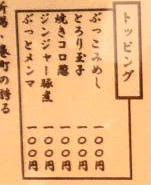 トッピング
ぶっこみめし 一〇〇円
とろり玉子 一〇〇円
焼きコロ葱 一〇〇円
ジンジャー豚煮 一〇〇円
ぶっとメンマ 一〇〇円
港町の誇る